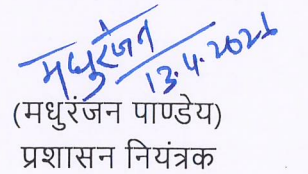 मधुरंजन
13.4.2021
(मधुरंजन पाण्डेय)
प्रशासन नियंत्रक